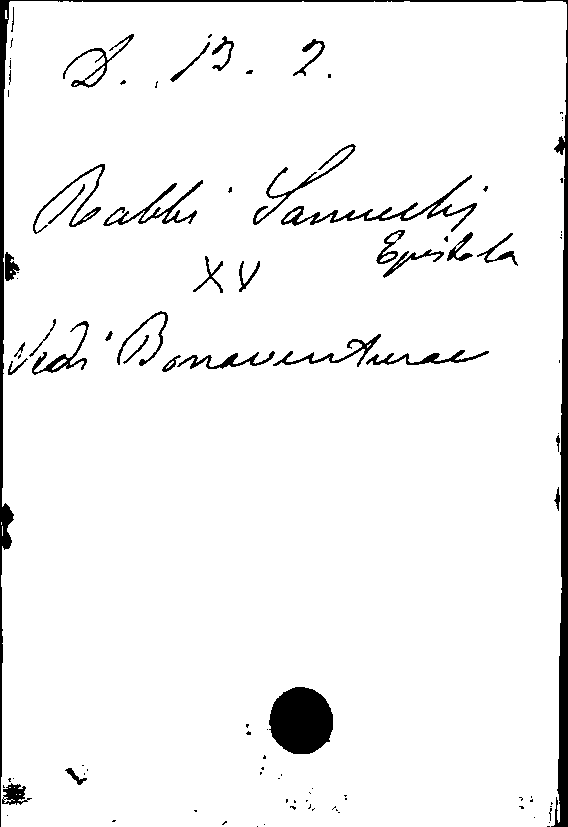 D. 13. 2.
Rabbi Samuelis
Epistola
XV
Vedi Bonaventurae